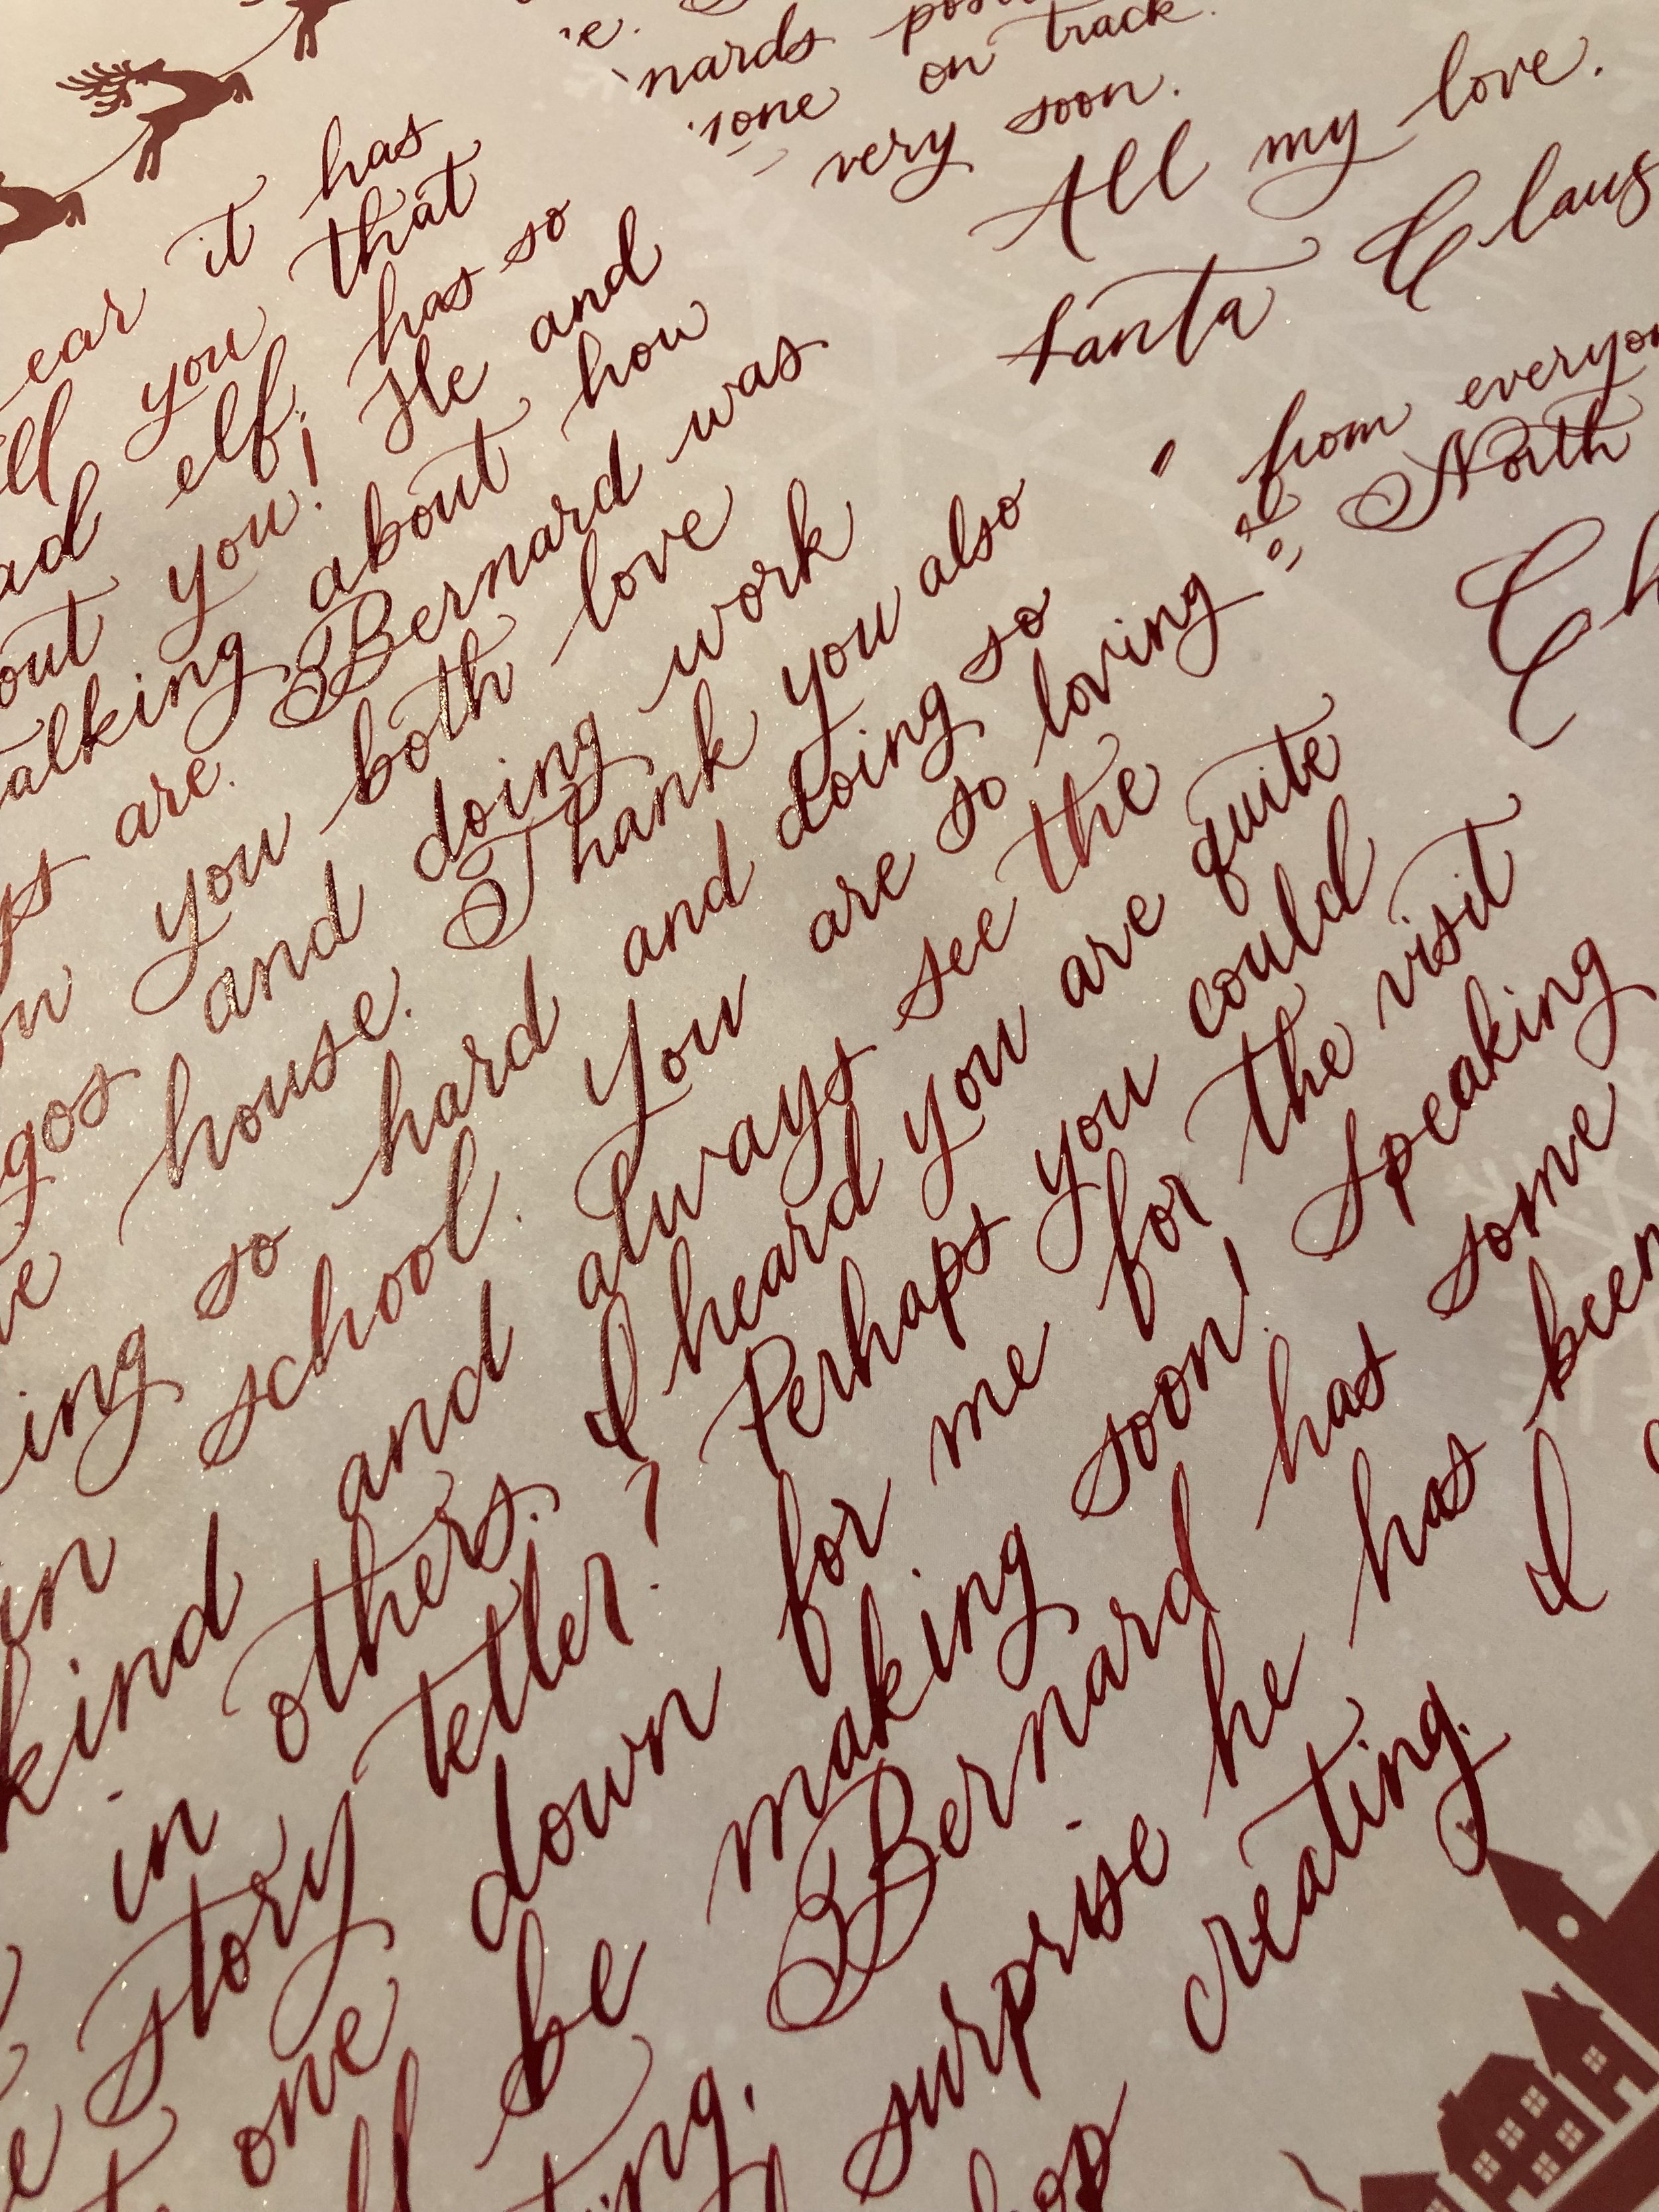 ear it has
ll you that
ad elf, has so
out you! He and
alking about how
ys are. Bernard was
on you both love
gos and doing work
e house. Thank you also
ing so hard and doing so
in school. You are so loving
kind and always see the
in others. I heard you are quite
e story teller! Perhaps you could
one down for me for the visit
ll be making soon! Speaking
ting. Bernard has some
surprise he has been
hop creating. I
nards
on track.
very soon.
All my love.
Santa Claus
from everyon
North
Ch